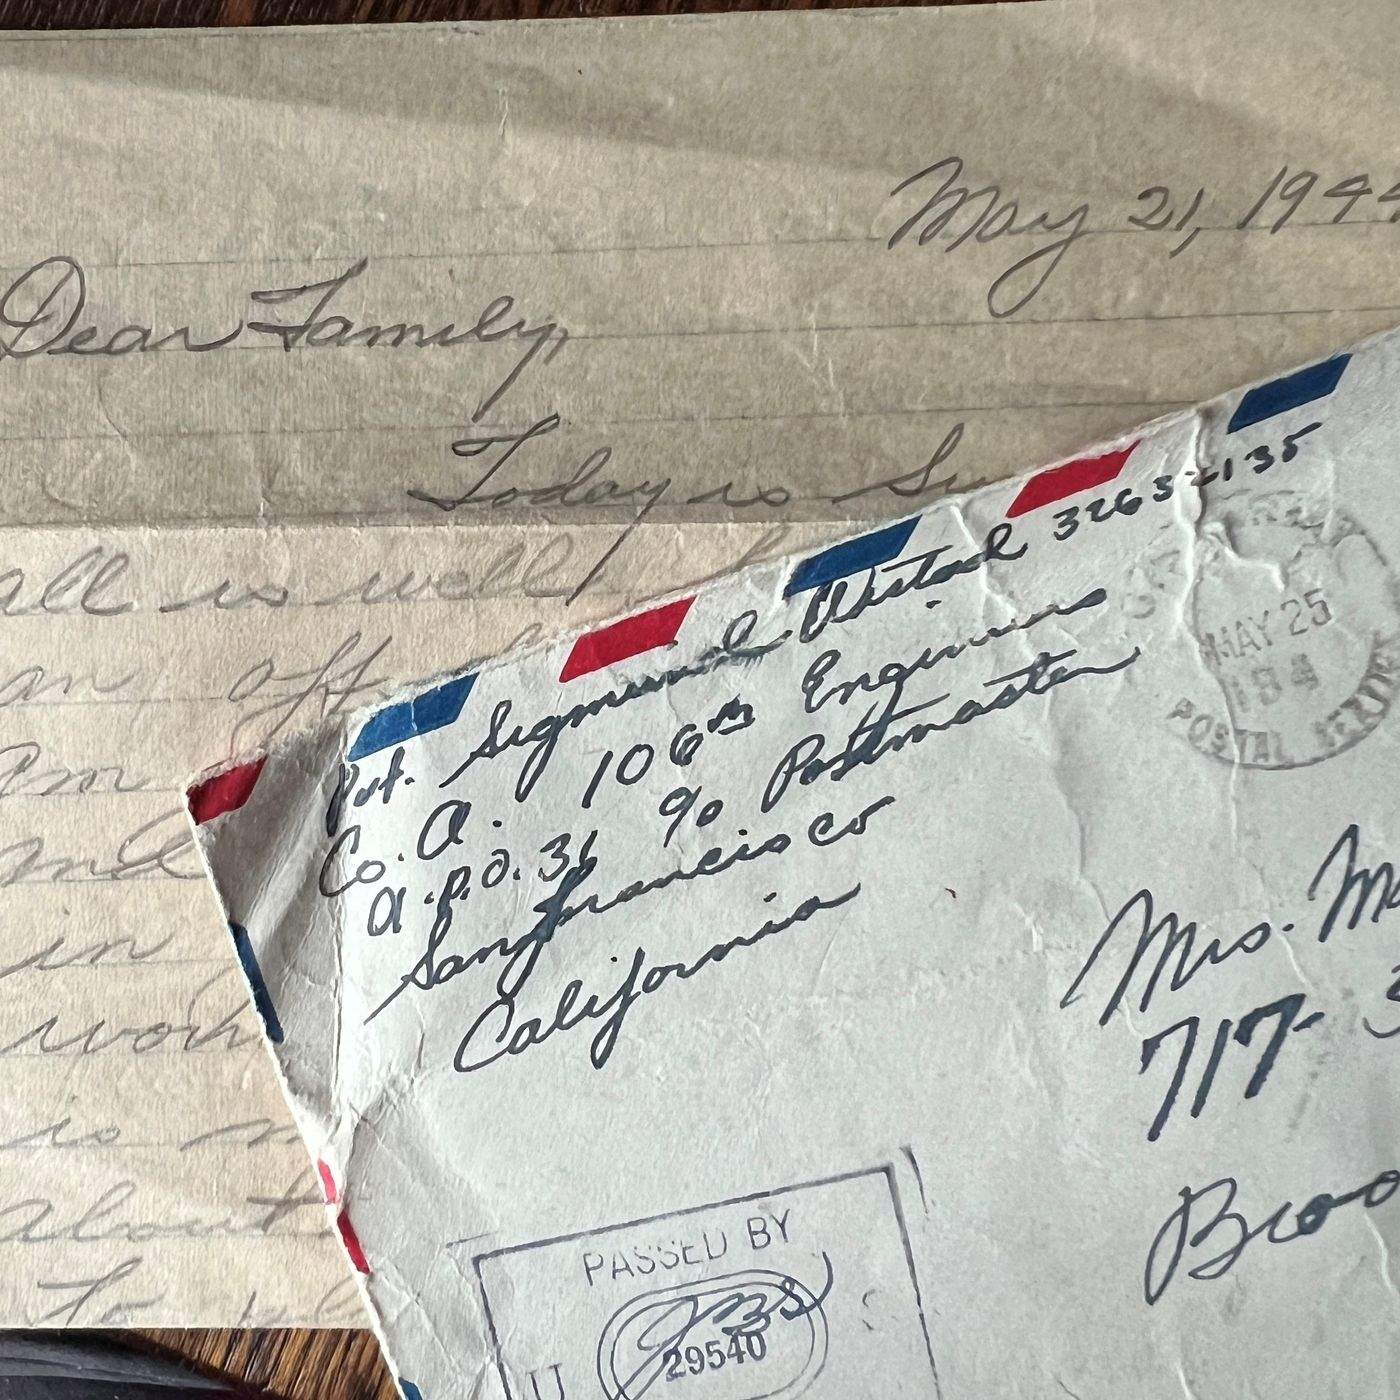 May 21, 1944
Dear Family,
Today is
all is well
an off
am
and
in
work
is
about
To
Pvt. Sigmund 32632135
Co. A. 106th Engineers
A.P.O. 31 % Postmaster
San Francisco
California
MAY 25
194
POSTAL SERVICE
Mrs.
717-
PASSED BY
29540